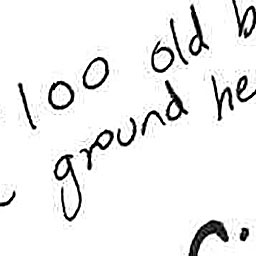 100 old
ground he